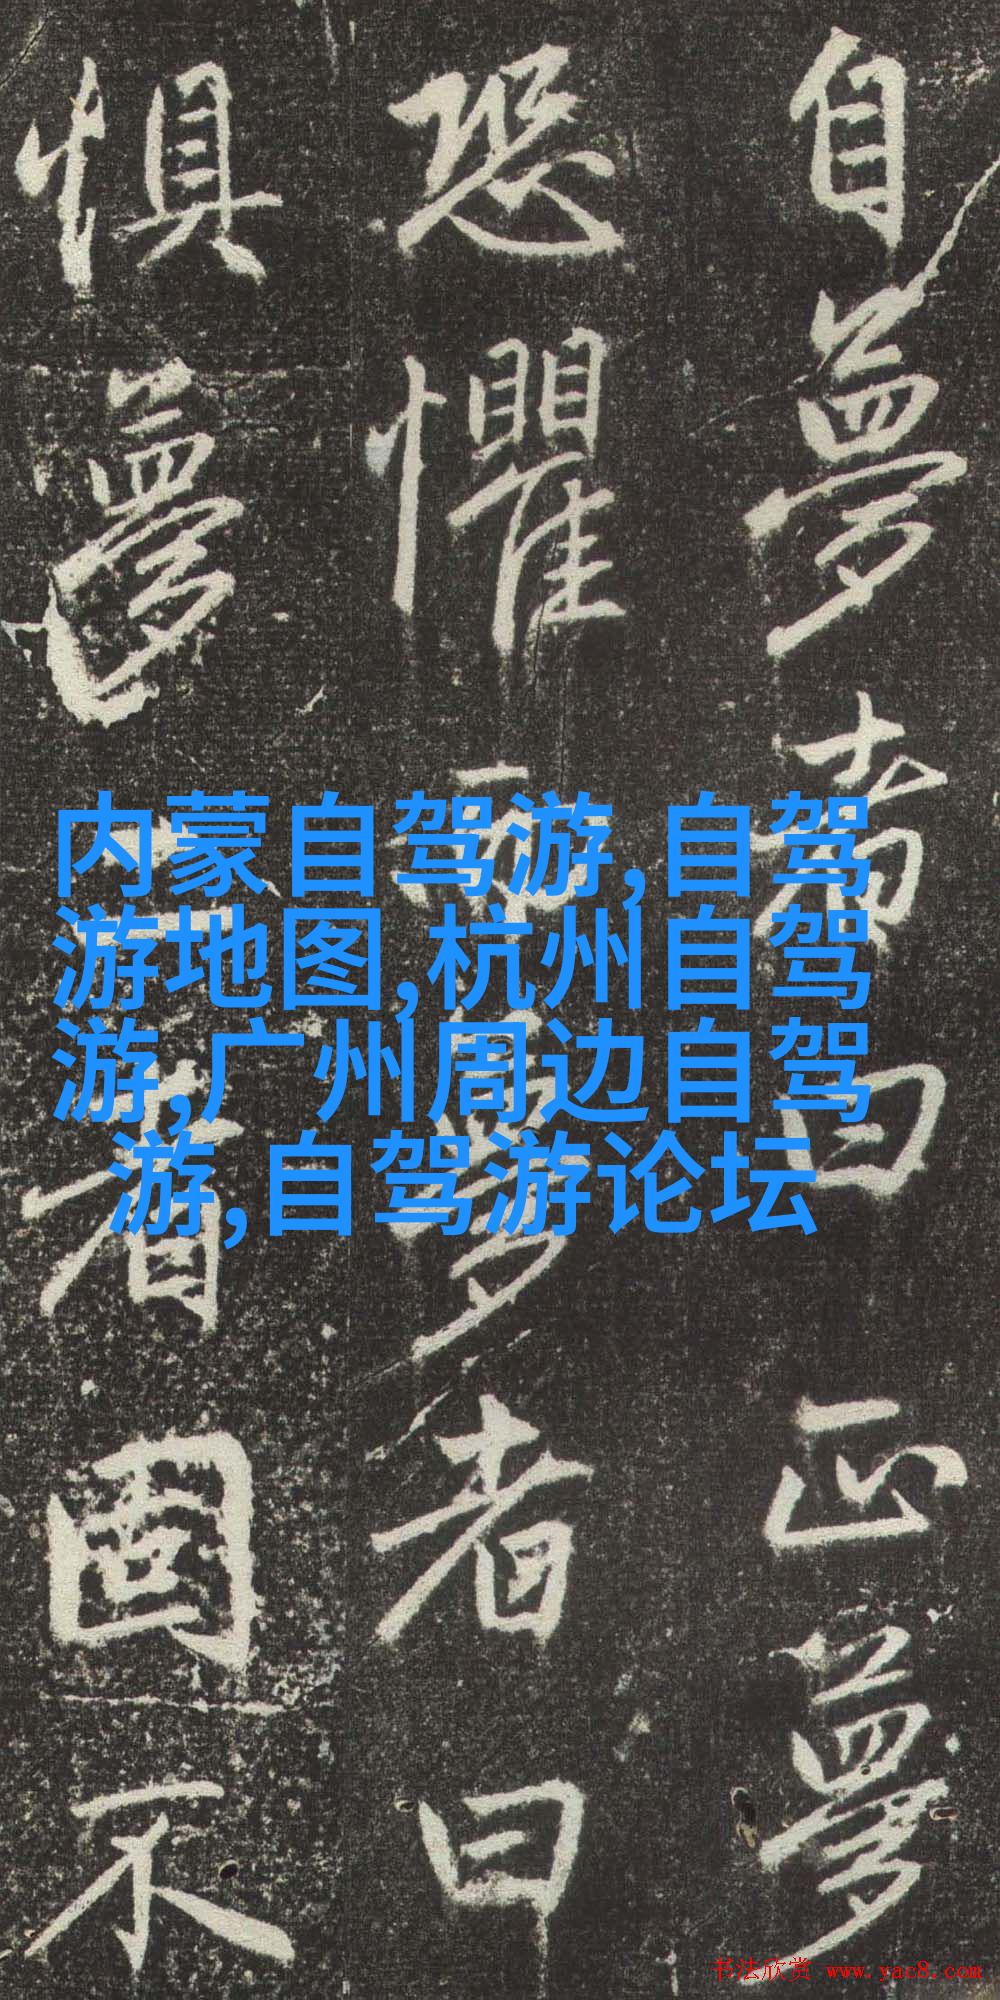 自夢者曰正夢
恐懼而夢者曰
惧夢二者固不
内蒙自驾游,自驾
游地图,杭州自驾
游,广州周边自驾
游,自驾游论坛
书法欣赏 www.yac8.com